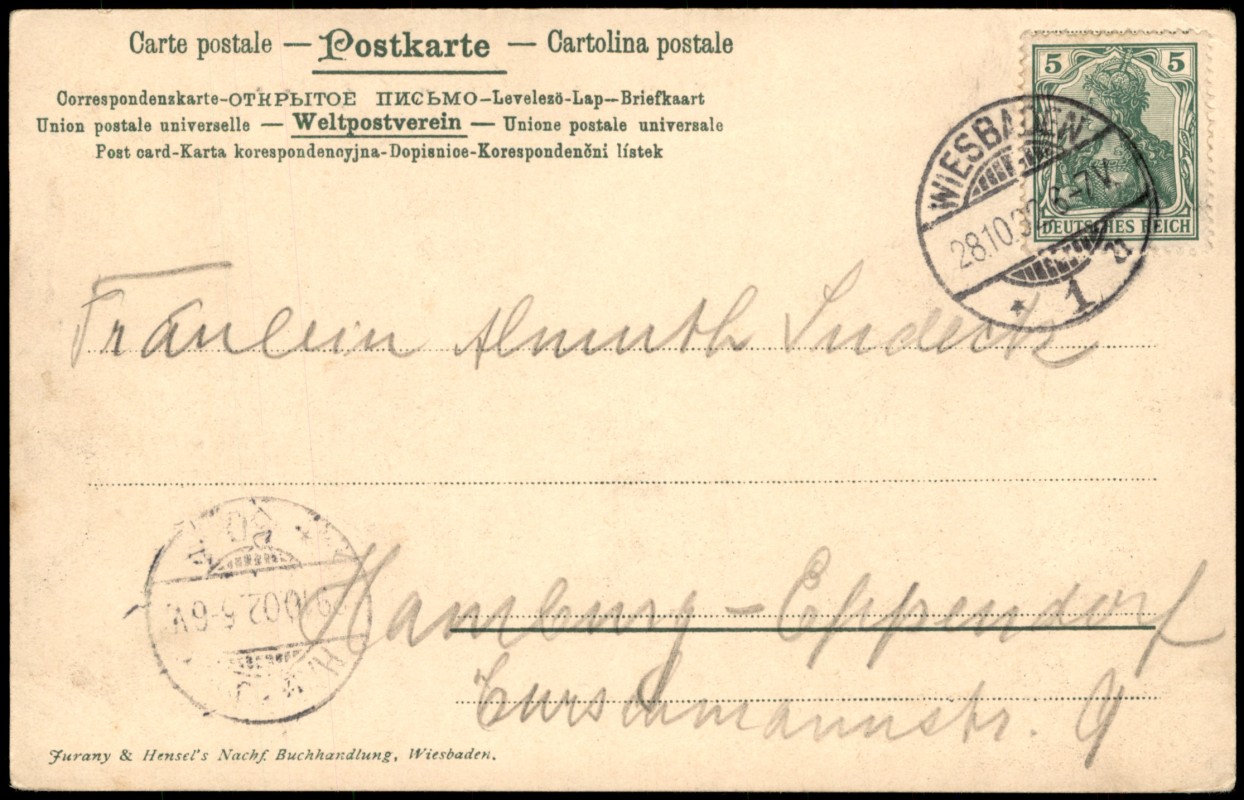 Carte postale — Postkarte — Cartolina postale
Correspondenzkarte-ОТКРЫТОЕ ПИСЬМО-Levelezö-Lap-Briefkaart
Union postale universelle — Weltpostverein — Unione postale universale
Post card-Karta korespondencyjna-Dopisnice-Korespondenčni listek
5 5
DEUTSCHES REICH
WIESBADEN
28.10.02. 6-7V.
* 1 a
Fräulein Almuth Sudeck
Hamburg - Eppendorf
Curschmannstr. 9
10.02. 5-6V.
Jurany & Hensel's Nachf. Buchhandlung, Wiesbaden.